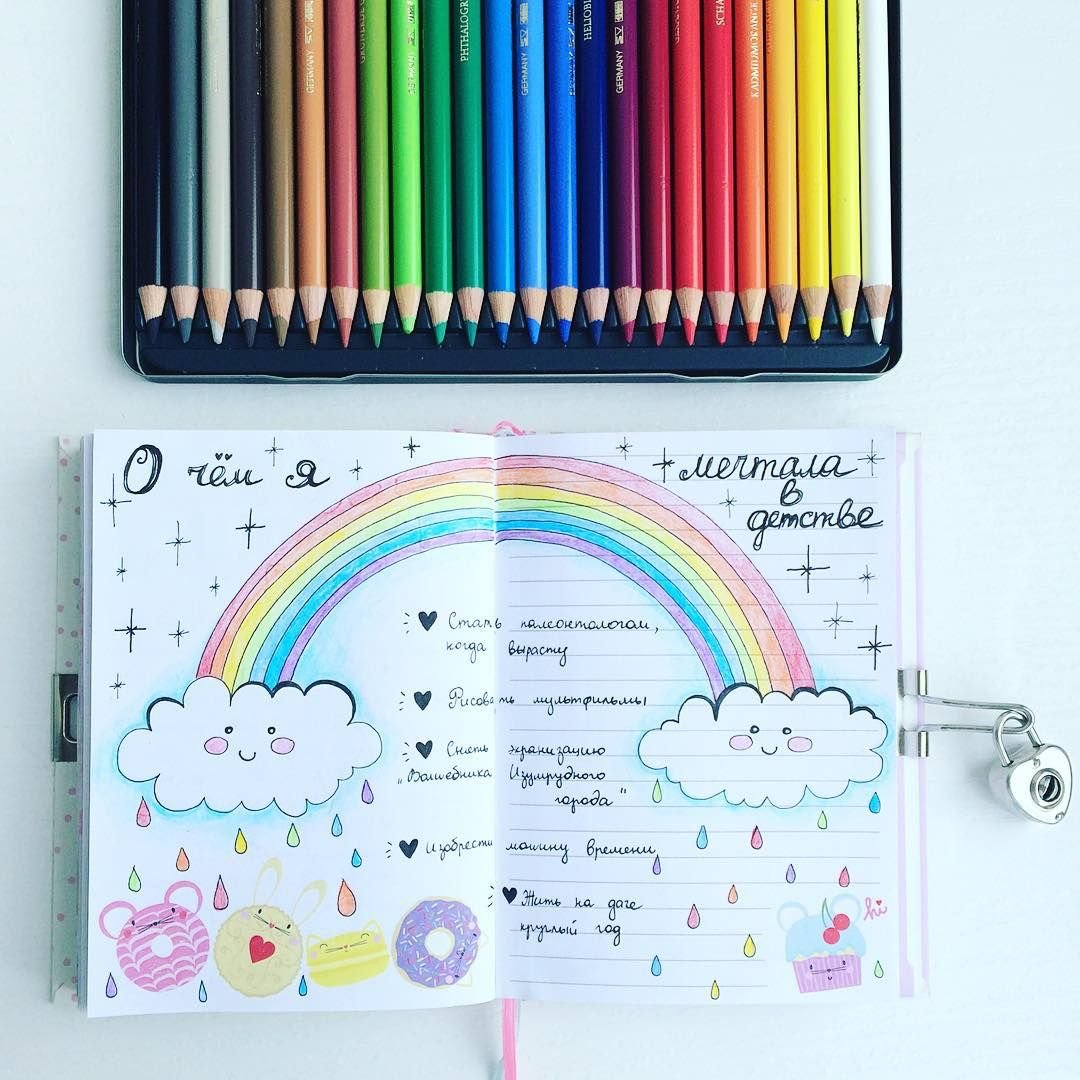 GERMANY
GRÜNERDE
GERMANY
PHTHALOGR
GERMANY
HELIOBL
GERMANY
SCHA
KADMIUMORANGE
О чём я
мечтала
в
детстве
Стать палеонтологом,
когда вырасту
Рисовать мультфильмы
Снять экранизацию
"Волшебника Изумрудного
города"
Изобрести машину времени
Жить на даче
круглый год
hi